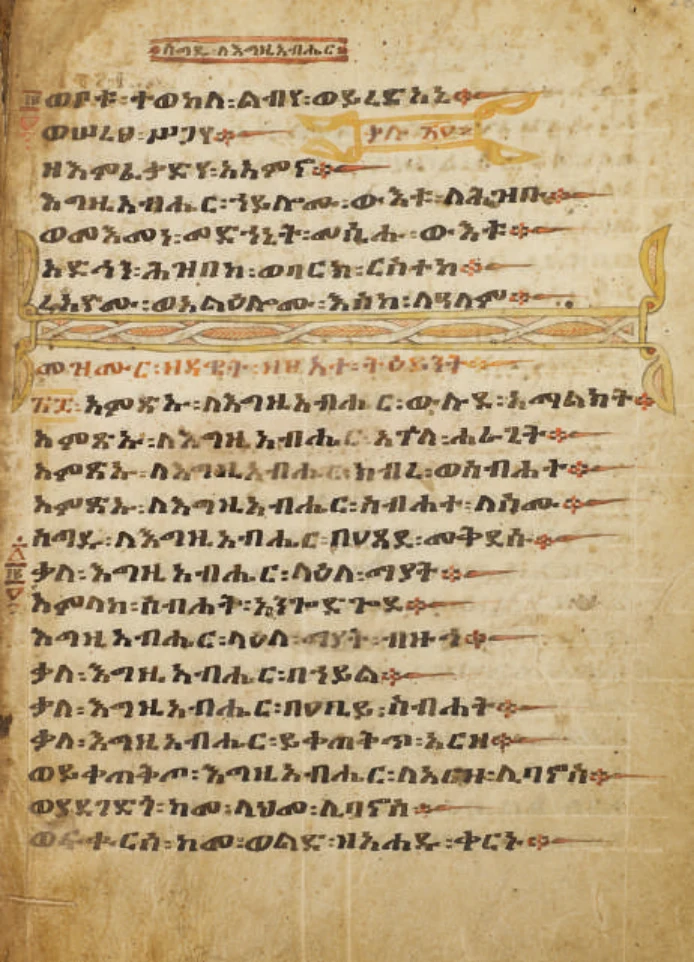 ስግዱ፡ለእግዚአብሔር
ወቦቱ፡ተወከለ፡ልብየ፡ወይረድአኒ
ወሠረፀ፡ሥጋየ
ዘእምፈቃድየ፡አአምኖ
እግዚአብሔር፡ኀይሎሙ፡ውእቱ፡ለሕዝቡ
ወመእመነ፡መድኀኒት፡መሲሑ፡ውእቱ
አድኅን፡ሕዝበከ፡ወባርክ፡ርስተከ
ረአዮሙ፡ወአልዕሎሙ፡እስከ፡ለዓለም
መዝሙር፡ዘዳዊት፡ትዕይንት
፳፰፡አምጽኡ፡ለእግዚአብሔር፡ውሉደ፡አማልክት
አምጽኡ፡ለእግዚአብሔር፡እጐለ፡ሐራጊት
አምጽኡ፡ለእግዚአብሔር፡ክብረ፡ወስብሐተ
አምጽኡ፡ለእግዚአብሔር፡ስብሐተ፡ለስሙ
ስግዱ፡ለእግዚአብሔር፡በዐጸደ፡መቅደሱ
ቃለ፡እግዚአብሔር፡ላዕለ፡ማያት
አምላከ፡ስብሐት፡አንጐድጐደ
እግዚአብሔር፡ላዕለ፡ማያት፡ብዙኅ
ቃለ፡እግዚአብሔር፡በኀይል
ቃለ፡እግዚአብሔር፡በዐቢይ፡ስብሐት
ቃለ፡እግዚአብሔር፡ይቀጠቅጥ፡አርዘ
ወይቀጠቅጦ፡እግዚአብሔር፡ለአርዘ፡ሊባኖስ
ወያደገድጎ፡ከመ፡ላህመ፡ሊባኖስ
ወፍቁርሰ፡ከመ፡ወልድ፡ዘአሐዱ፡ቀርኑ